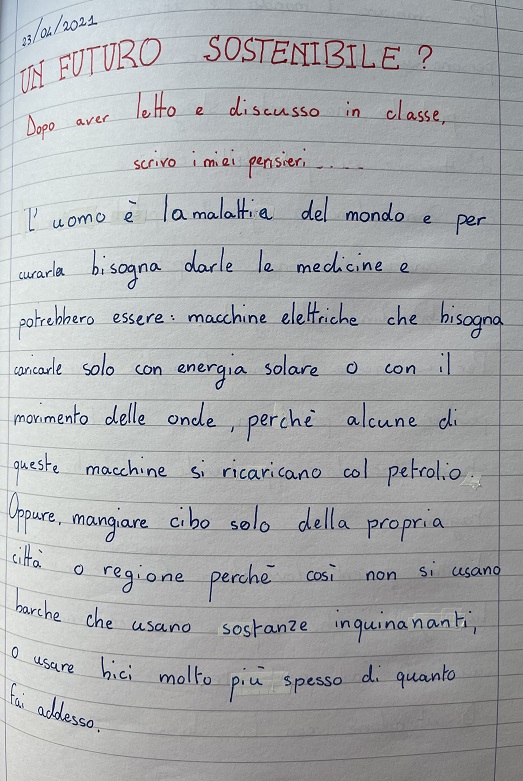 23/04/2021
UN FUTURO SOSTENIBILE ?
Dopo aver letto e discusso in classe,
scrivo i miei pensieri......
L'uomo è la malattia del mondo e per
curarla bisogna darle le medicine e
potrebbero essere: macchine elettriche che bisogna
caricarle solo con energia solare o con il
movimento delle onde, perchè alcune di
queste macchine si ricaricano col petrolio.
Oppure, mangiare cibo solo della propria
città o regione perchè così non si usano
barche che usano sostanze inquinananti,
o usare bici molto più spesso di quanto
fai addesso.